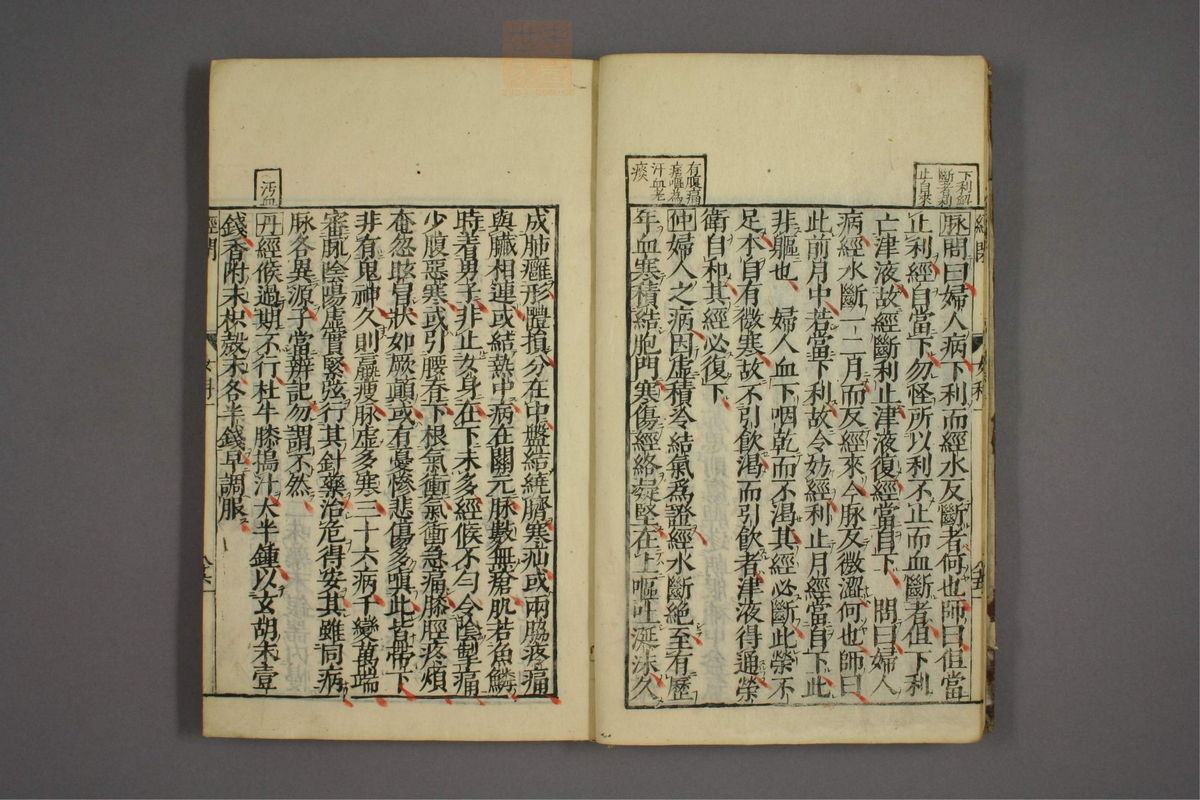 下利經
斷者利
止自來
脉問曰婦人病下利而經水反斷者何也師曰但當
止利經自當下勿怪所以利不止而血斷者但下利
亡津液故經斷利止津液復經當自下 問曰婦人
病經水斷一二月而反經來今脉反微澀何也師曰
此前月中若當下利故令妨經利止月經當自下此
非軀也 婦人血下咽乾而不渴其經必斷此榮不
足本自有微寒故不引飲渴而引飲者津液得通榮
衛自和其經必復下
有腹痛
汗血老
痰
仲婦人之病因虛積冷結氣為證經水斷絕至有歷
年血寒積結胞門寒傷經絡凝堅在上嘔吐涎沫久
成肺癰形體損分在中盤結繞臍寒疝或兩脇疼痛
與臟相連或結熱中病在關元脉數無瘡肌若魚鱗
時着男子非止女身在下未多經候不勻令陰掣痛
少腹惡寒或引腰脊下根氣衝氣衝急痛膝脛疼煩
奄忽眩冒狀如厥顛或有憂慘悲傷多嗔此皆帶下
非有鬼神久則羸瘦脉虛多寒三十六病千變萬端
審脉陰陽虛實緊弦行其針藥治危得安其雖同病
脉各異源子當辨記勿謂不然
汚血
丹經候過期不行杜牛膝搗汁大半鍾以玄胡末壹
錢香附末枳殼末各半錢早調服